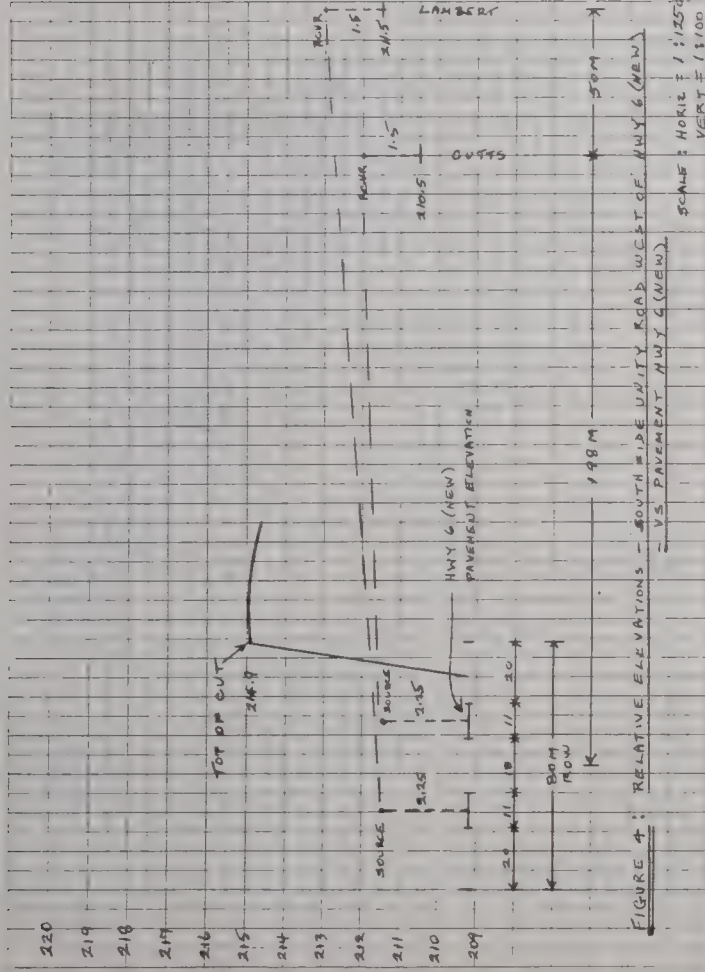 220
219
218
217
216
215
214
213
212
211
210
209
TOP OF CUT
214.9
SOURCE
2.25
SOURCE
2.25
HWY 6 (NEW)
PAVEMENT ELEVATION
RCVR
1.5
210.5
CUTTS
RCVR
1.5
211.5
LAMBERT
20
11
18
11
20
80M
ROW
198M
50M
FIGURE 4: RELATIVE ELEVATIONS - SOUTH SIDE UNITY ROAD WEST OF HWY 6 (NEW)
- VS PAVEMENT HWY 6 (NEW)
SCALE: HORIZ = 1:1250
VERT = 1:100